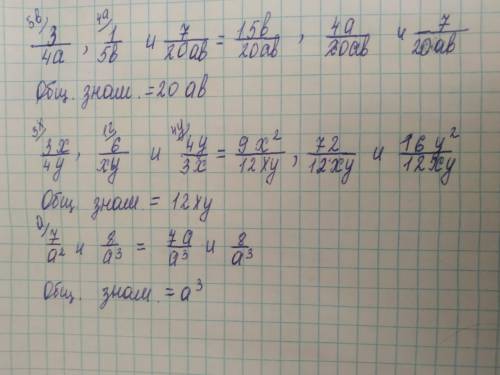 5в) 3/4a , 4a) 1/5в и 7/20aв = 15в/20aв , 4a/20aв и 7/20aв
Общ. знам. = 20 aв
3x) 3x/4y , 12) 6/xy и 4y) 4y/3x = 9x²/12xy , 72/12xy и 16y²/12xy
Общ. знам = 12xy
a) 7/a² и 8/a³ = 7a/a³ и 8/a³
Общ. знам. = a³